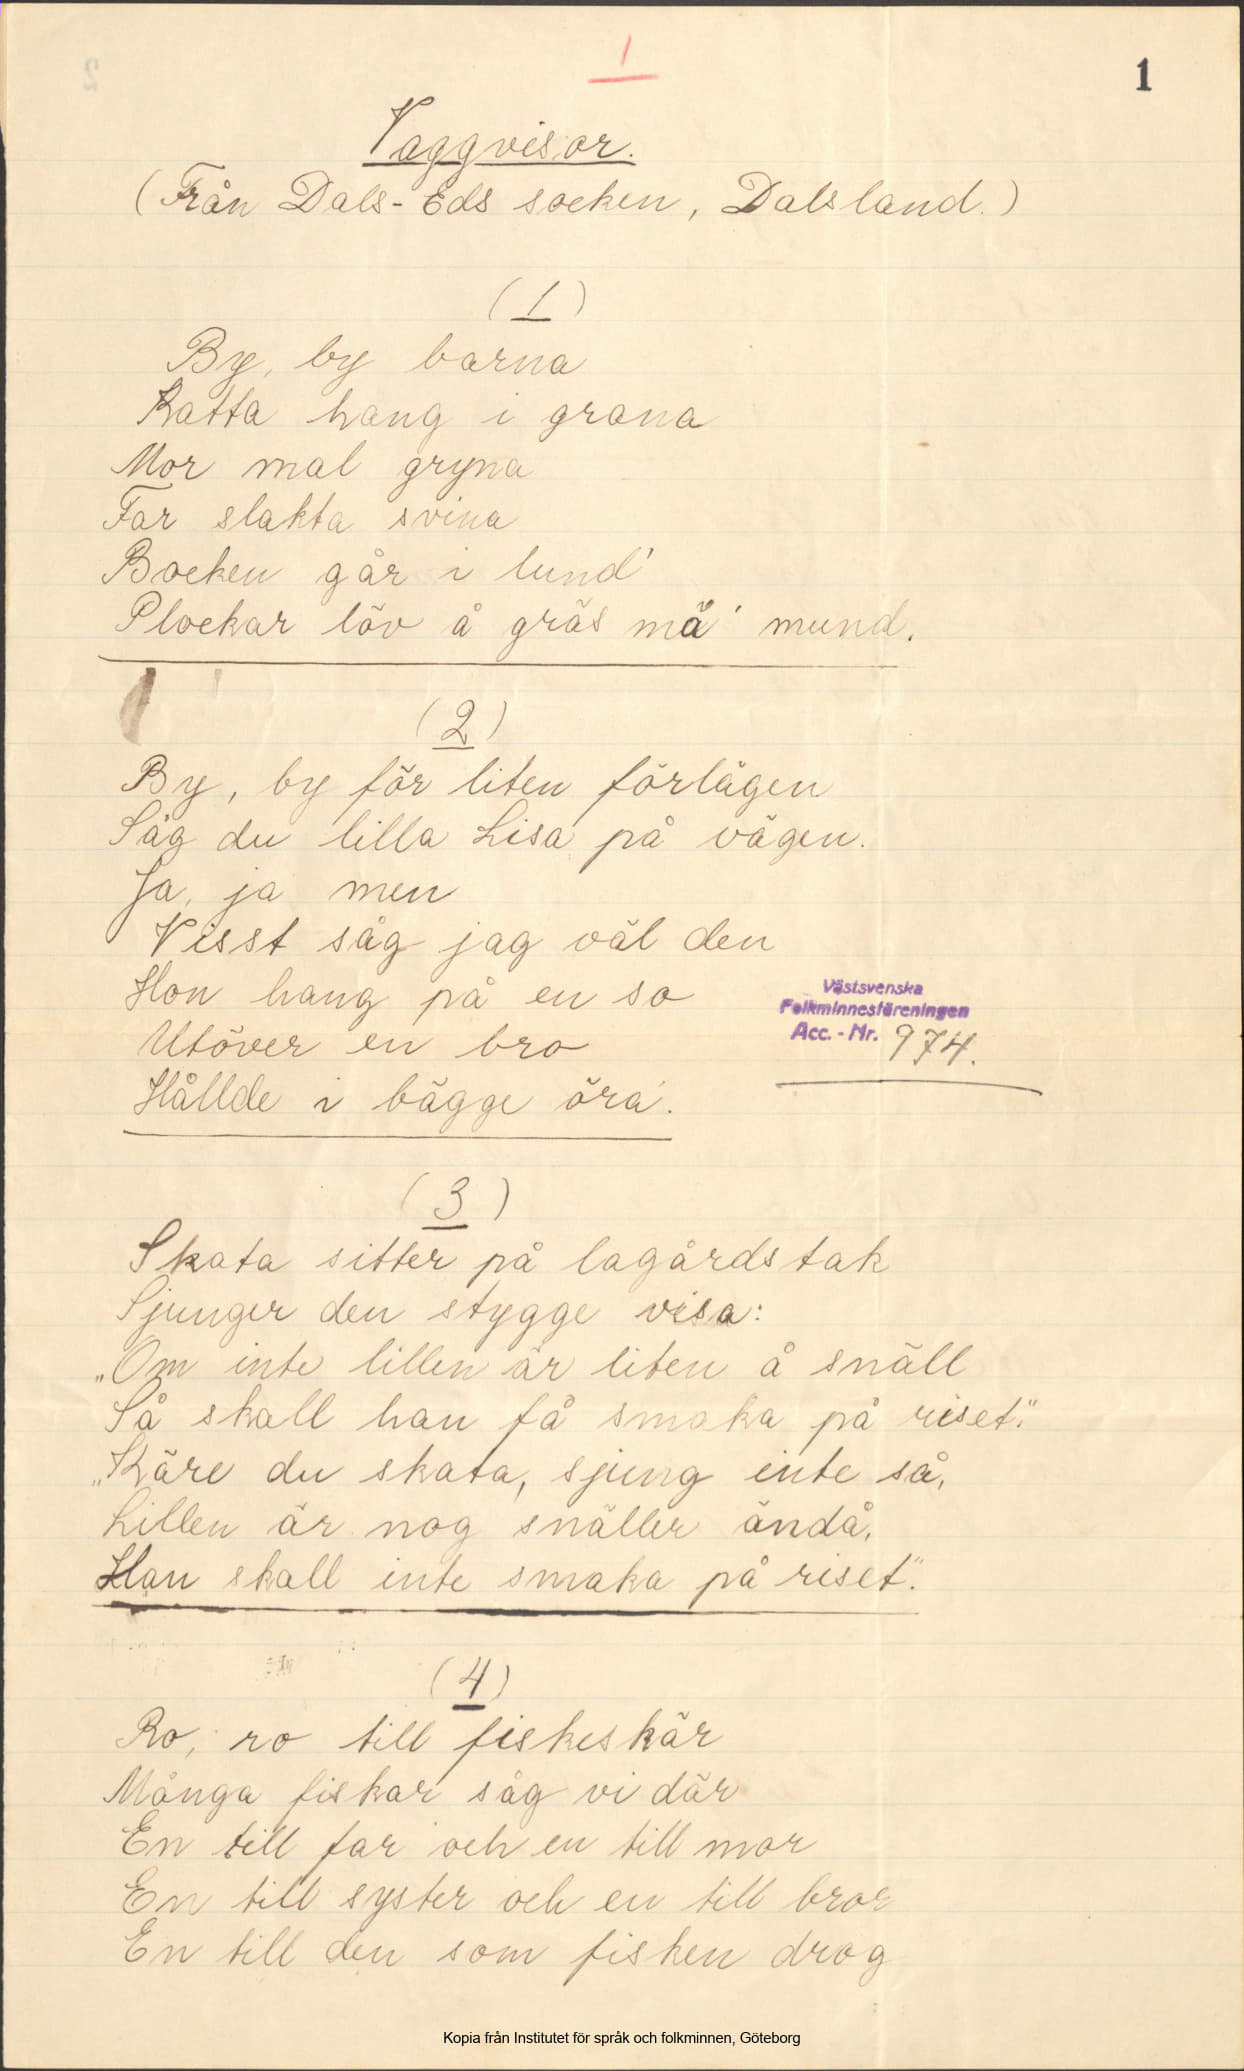 1
1
Vaggvisor.
(Från Dals-Eds socken, Dalsland.)
(1)
By, by barna
Katta hang i grana
Mor mal gryna
Far slakta svina
Bocken går i lund'
Plockar löv å gräs mä' mund.
(2)
By, by för liten förlägen
Såg du lilla Lisa på vägen.
Ja, ja men
Visst såg jag väl den
Hon hang på en so
Utöver en bro
Hållde i bägge öra'.
Västsvenska
Folkminnesföreningen
Acc.-Nr. 974.
(3)
Skata sitter på lagårdstak
Sjunger den stygge visa:
„Om inte lillen är liten å snäll
Så skall han få smaka på riset."
„Käre du skata, sjung inte så,
Lillen är nog snäller ändå,
Han skall inte smaka på riset."
(4)
Ro, ro till fiskeskär
Många fiskar såg vi där
En till far och en till mor
En till syster och en till bror
En till den som fisken drog
Kopia från Institutet för språk och folkminnen, Göteborg